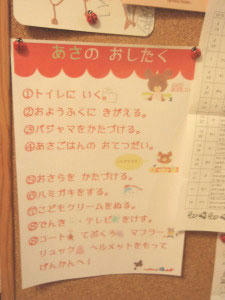 あさの おしたく
①トイレに いく。
②おようふくに きがえる。
③パジャマをかたづける。
④あさごはんの おてつだい。
⑤おさらを かたづける。
⑥ハミガキをする。
⑦こどもクリームをぬる。
⑧でんき・テレビをけす。
⑨コート てぶくろ マフラー
リュック ヘルメットをもって
げんかんへ!